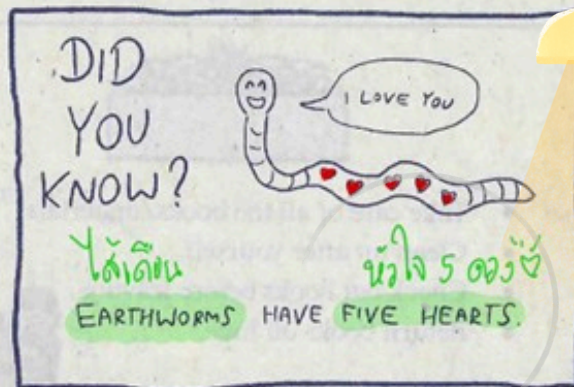 DID
YOU
KNOW?
I LOVE YOU
ไส้เดือน
หัวใจ 5 ดวง
EARTHWORMS HAVE FIVE HEARTS.